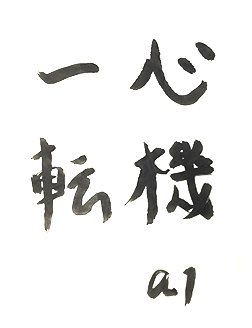 心機
一転
a1